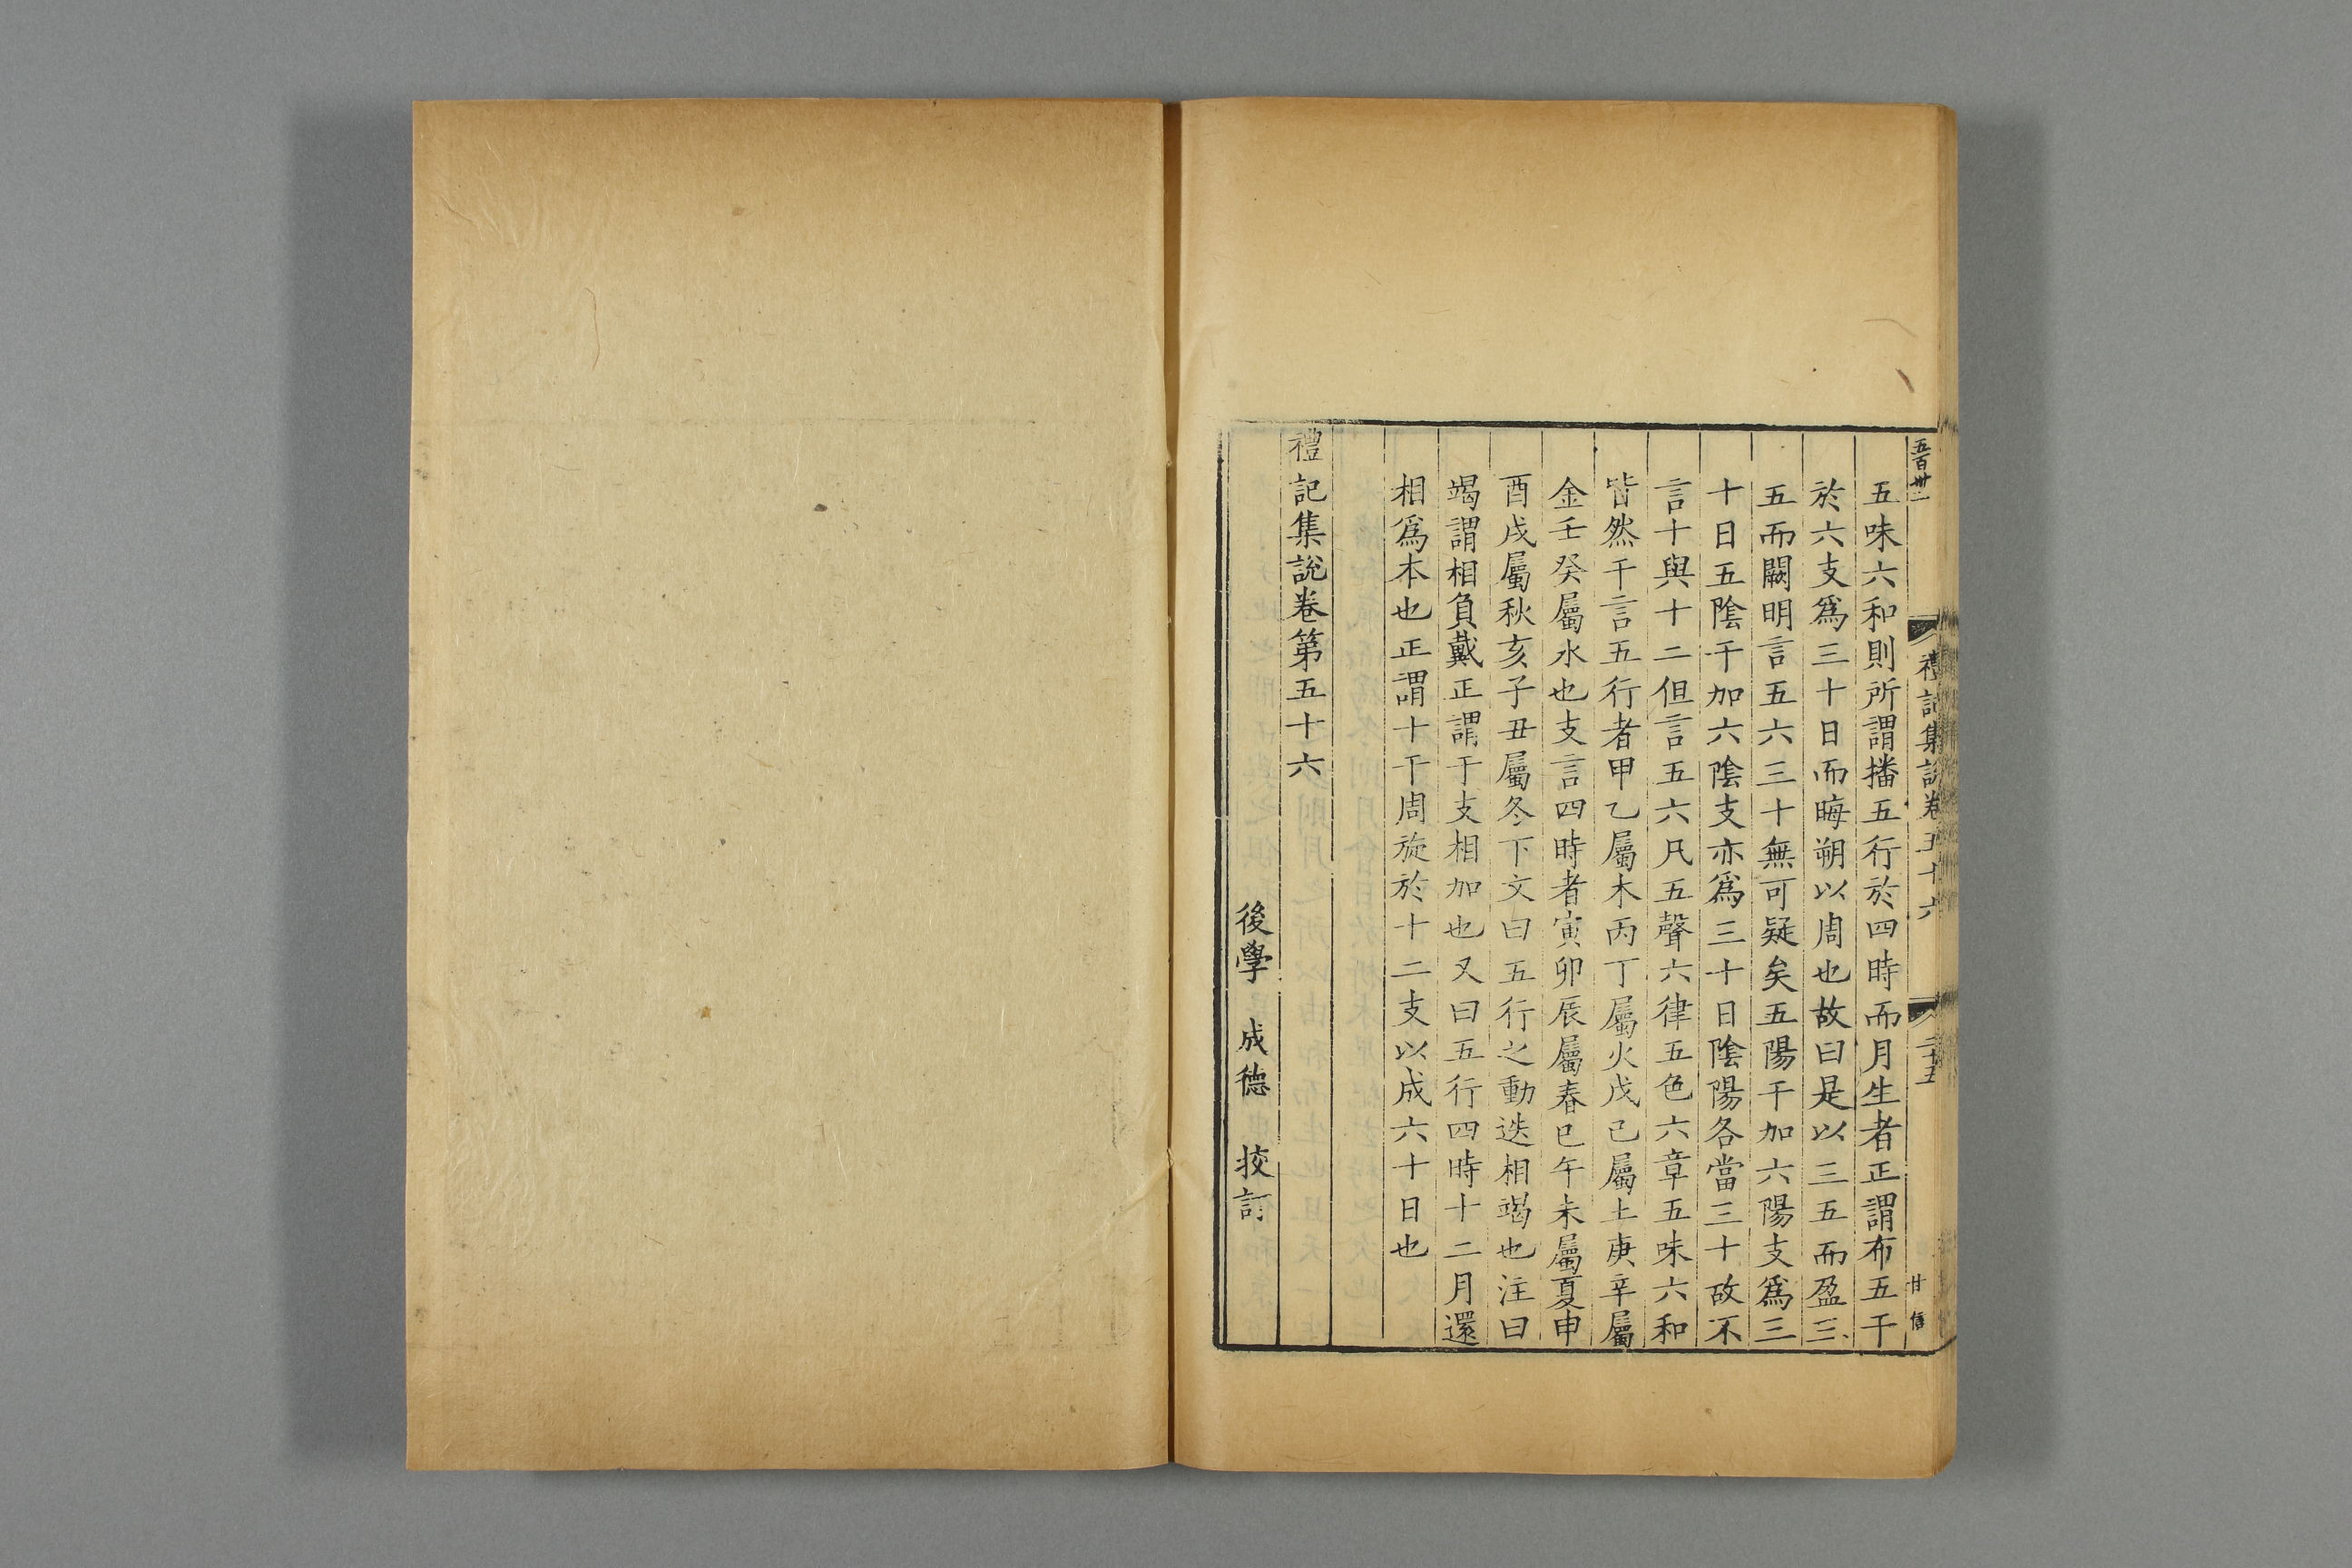 五百卅二
禮記集說卷五十六
二十五
甘信
五味六和則所謂播五行於四時而月生者正謂布五干
於六支爲三十日而晦朔以周也故曰是以三五而盈三
五而闕明言五六三十無可疑矣五陽干加六陽支爲三
十日五陰干加六陰支亦爲三十日陰陽各當三十故不
言十與十二但言五六凡五聲六律五色六章五味六和
皆然干言五行者甲乙屬木丙丁屬火戊己屬土庚辛屬
金壬癸屬水也支言四時者寅卯辰屬春巳午未屬夏申
酉戌屬秋亥子丑屬冬下文曰五行之動迭相竭也注曰
竭謂相負戴正謂干支相加也又曰五行四時十二月還
相爲本也正謂十干周旋於十二支以成六十日也
禮記集說卷第五十六
後學 成德 挍訂